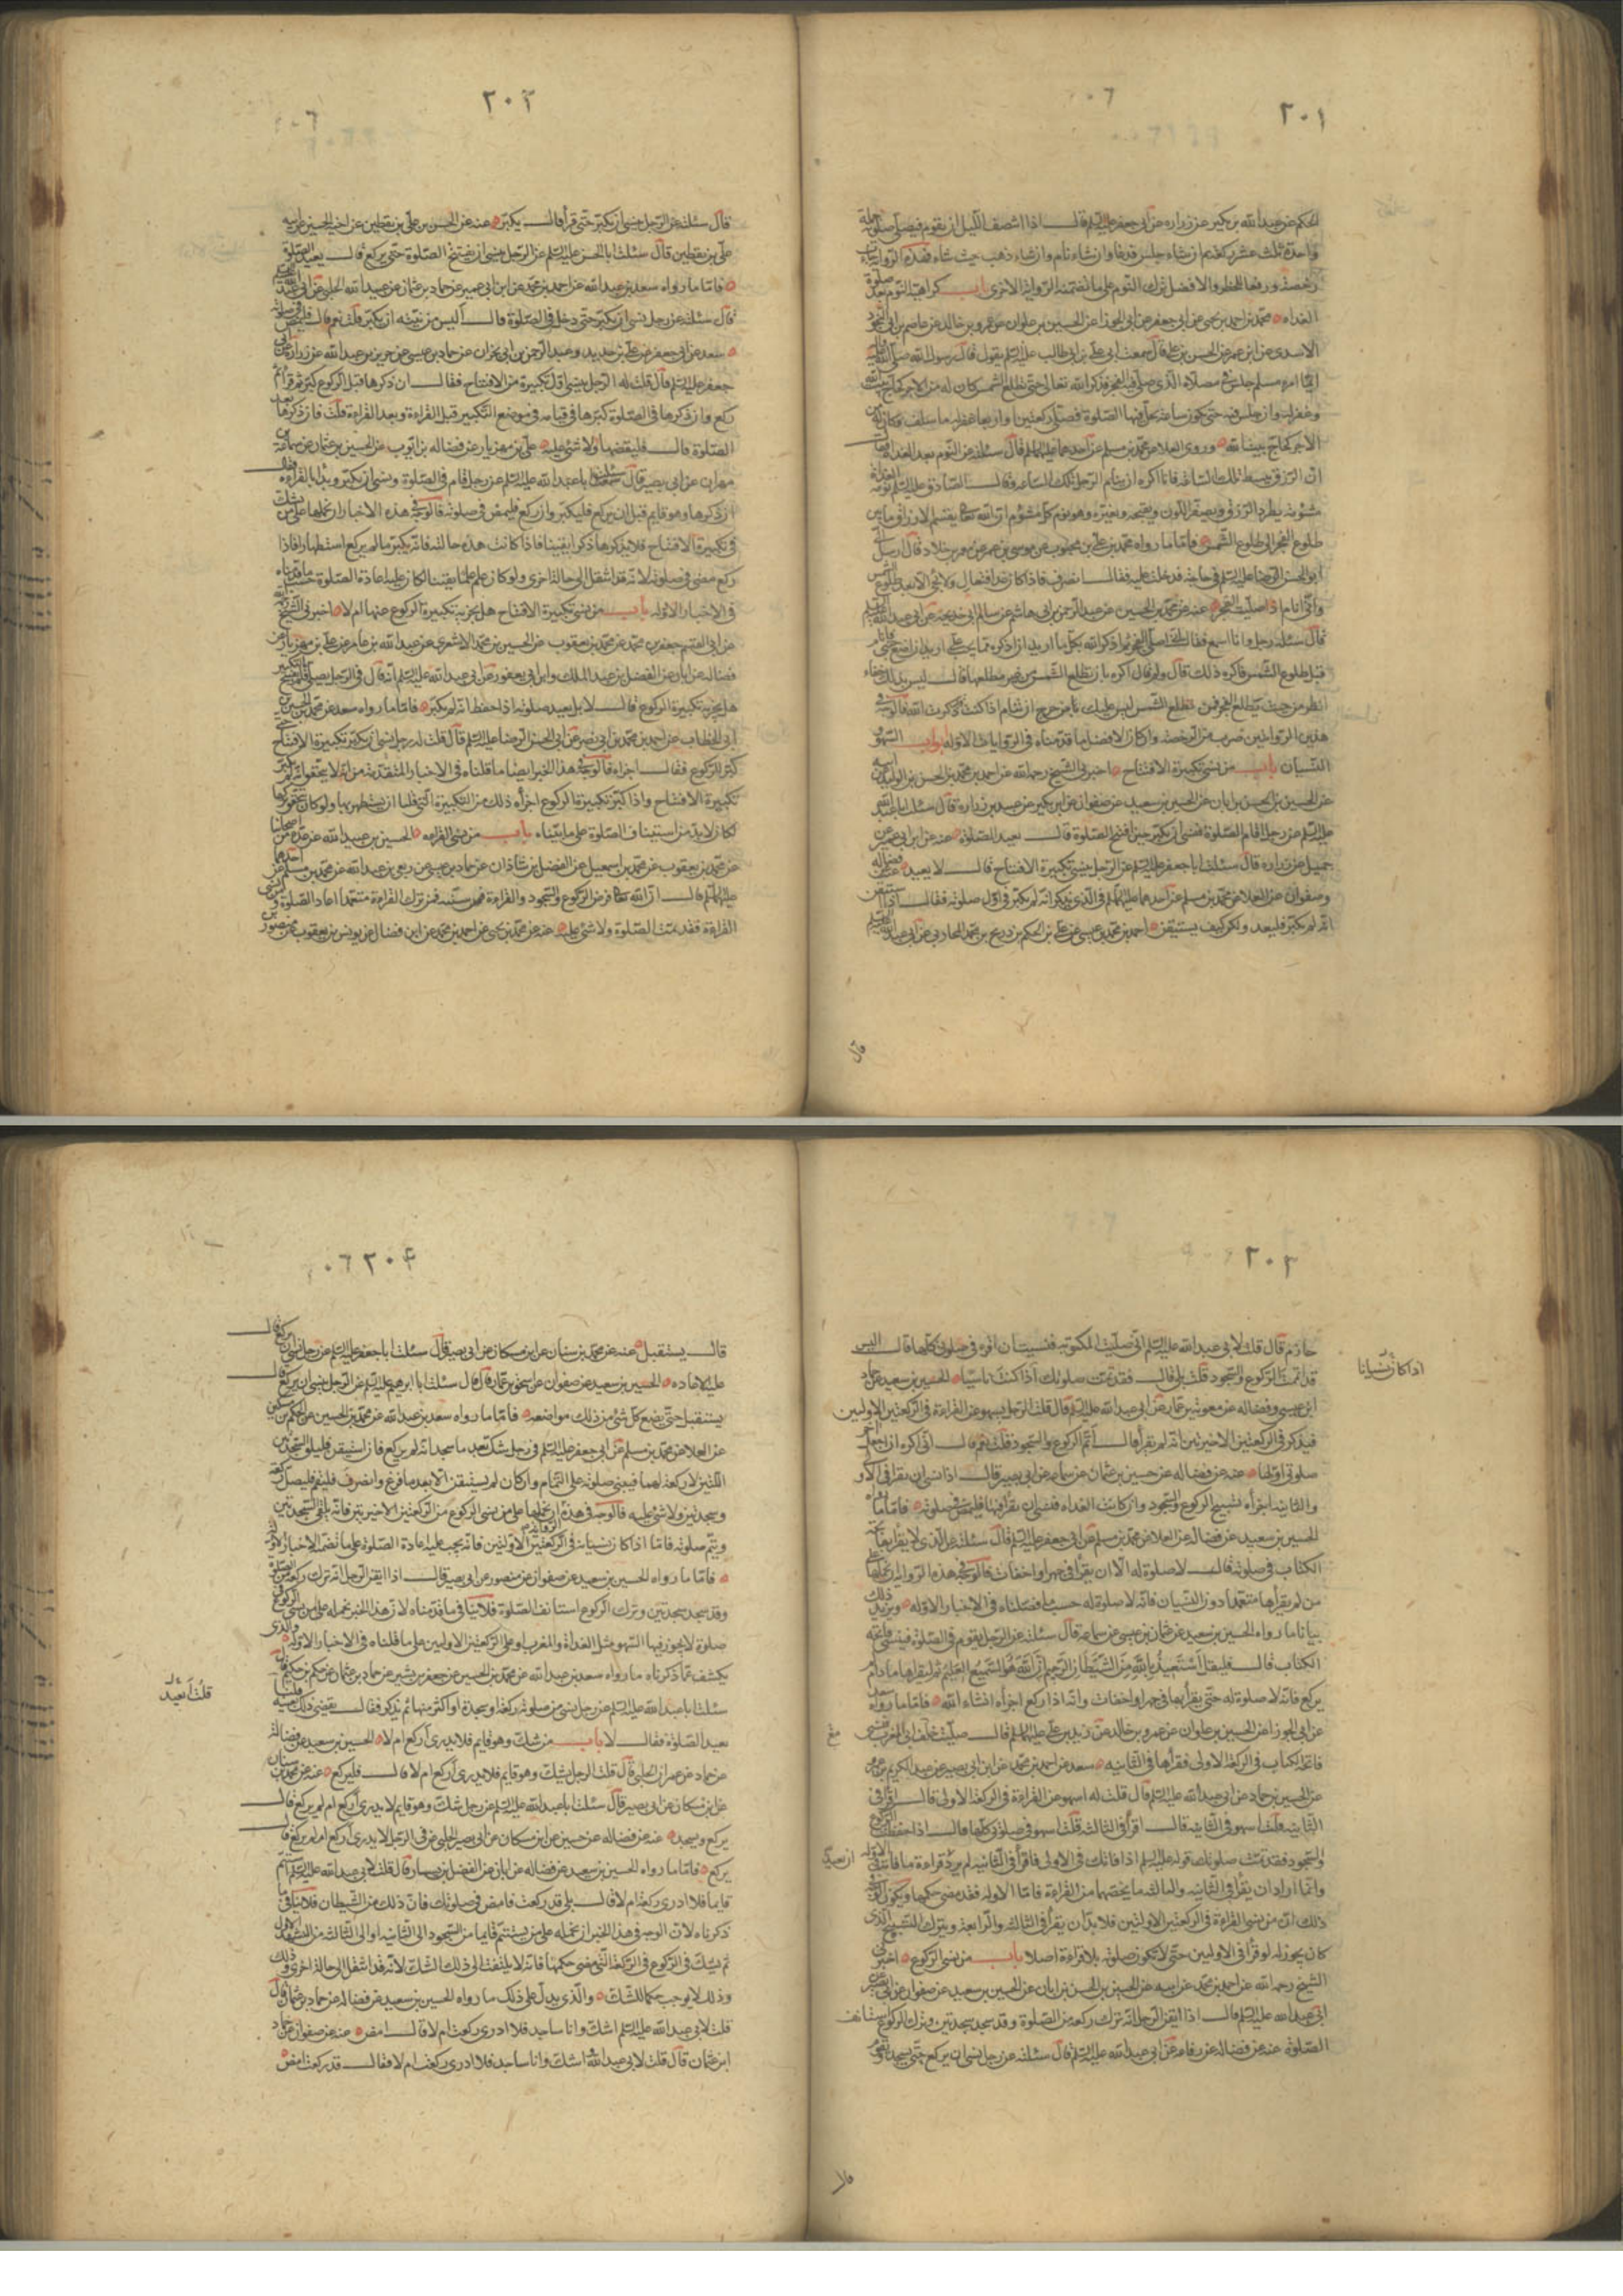 ٢٠١
الحكم عن عبد الله بن بكير عن زراره عن ابي جعفر عليه السلم قال اذا انتصف الليل ان يقوم فيصلي صلوته جملة
واحدة ثلث عشر ركعة ثم ان شاء جلس فدعا وان شاء نام وان شاء ذهب حيث شاء فهذه الرواية
رخصة ورفعا للحظر والافضل ترك النوم على ما تضمنه الرواية الاخرى باب كراهية النوم بعد صلوة
الغداه محمد بن احمد بن يحيى عن ابي جعفر عن ابي الجوزا عن الحسين بن علوان عن عمرو بن خالد عن عاصم بن ابي النجود
الاسدي عن ابن عمر عن الحسن بن علي قال سمعت ابي علي بن ابي طالب عليه السلم يقول قال رسول الله صلى الله عليه
ايما امرء مسلم جلس في مصلاه الذي صلى فيه الفجر فذكر الله تعالى حتى تطلع الشمس كان له من الاجر كحاج بيت الله
وغفر له وان جلس فيه حتى يكون ساعة تحل فيها الصلوة فصلى ركعتين او اربعا غفر له ما سلف وكان له من
الاجر كحاج بيت الله وروى العلا عن محمد بن مسلم عن احدهما عليهما السلم قال سئلته عن النوم بعد الغداة فقال
ان الرزق يبسط تلك الساعة فانا اكره ان ينام الرجل تلك الساعه وقال الصادق عليه السلم نومة الغداة
مشومة يطرد الرزق ويصفر اللون ويقبحه ويغيره وهو نوم كل مشوم ان الله تعالى يقسم الارزاق ما بين
طلوع الفجر الى طلوع الشمس فاما ما رواه محمد بن علي بن محبوب عن موسى بن عمر عن معمر بن خلاد قال ارسل الي
ابو الحسن الرضا عليه السلم في حاجة فدخلت عليه فقال انصرف فاذا كان غدا فتعال ولا تجئ الا بعد طلوع الشمس
فاني انام اذا صليت الفجر عنه عن محمد بن الحسين عن عبد الرحمن بن ابي هاشم عن سالم ابي خديجة عن ابي عبد الله عليه السلم
قال سئله رجل وانا اسمع فقال اني اصلي الفجر ثم اذكر الله بكل ما اريد ان اذكره مما يجب علي اريد ان اضع جنبي فانام
قبل طلوع الشمس فاكره ذلك قال ولم قال اكره بان تطلع الشمس من غير مطلعها قال ليس بذلك خفاء
انظر من حيث يطلع الفجر فمن ثم تطلع الشمس ليس عليك بأس من حرج ان تنام اذا كنت قد ذكرت الله فالوجه في
هذين الروايتين ضرب من الرخصة وان كان الافضل ما قدمناه في الروايات الاوله ابواب السهو
النسيان باب من نسي تكبيرة الافتتاح اخبرني الشيخ رحمه الله عن احمد بن محمد بن الحسن بن الوليد عن ابيه
عن الحسين بن الحسن بن ابان عن الحسين بن سعيد عن صفوان عن ابن بكير عن عبيد بن زراره قال سئلت ابا عبد الله
عليه السلم عن رجل اقام الصلوة فنسي ان يكبر حين افتتح الصلوة قال يعيد الصلوة عنه عن ابن ابي عمير عن
جميل عن زراره قال سئلت ابا جعفر عليه السلم عن الرجل ينسى تكبيرة الافتتاح قال لا يعيد عنه عن فضاله
وصفوان عن العلا عن محمد بن مسلم عن احدهما عليهما السلم في الذي يذكر انه لم يكبر في اول صلوته فقال اذا استيقن
انه لم يكبر فليعد ولكن كيف يستيقن احمد بن محمد بن عيسى عن علي بن الحكم عن ذريح بن محمد المحاربي عن ابي عبد الله عليه السلم
قال
٢٠٢
قال سئلته عن الرجل ينسى ان يكبر حتى قرأ قال يكبر عنه عن الحسن بن علي بن يقطين عن اخيه الحسين عن ابيه
علي بن يقطين قال سئلت ابا الحسن عليه السلم عن الرجل ينسى ان يفتتح الصلوة حتى يركع قال يعيد الصلوة
فاما ما رواه سعد بن عبد الله عن احمد بن محمد عن ابن ابي عمير عن حماد بن عثمان عن عبيد الله الحلبي عن ابي عبد الله
قال سئلته عن رجل نسي ان يكبر حتى دخل في الصلوة قال اليس من نيته ان يكبر قلت نعم قال فليمض في صلوته
سعد عن ابي جعفر عن علي بن حديد وعبد الرحمن بن ابي نجران عن حماد بن عيسى عن حريز بن عبد الله عن زراره عن ابي
جعفر عليه السلم قال قلت له الرجل ينسى اول تكبيرة من الافتتاح فقال ان ذكرها قبل الركوع كبر ثم قرأ ثم
ركع وان ذكرها في الصلوة كبرها في قيامه في موضع التكبير قبل القراءة وبعد القراءة قلت فان ذكرها بعد
الصلوة قال فليقضها ولا شئ عليه علي بن مهزيار عن فضاله بن ايوب عن الحسين بن عثمان عن سماعة بن
مهران عن ابي بصير قال سئلت ابا عبد الله عليه السلم عن رجل قام في الصلوة ونسي ان يكبر وبدأ بالقراءه فقال
ان ذكرها وهو قايم قبل ان يركع فليكبر وان ركع فليمض في صلوته فالوجه في هذه الاخبار ان نحملها على من يشك
في تكبيرة الافتتاح فلا يذكرها ذكرا يقينا فاذا كانت هذه حالته فانه يكبر ما لم يركع استظهارا فاذا
ركع مضى في صلوته لانه قد انتقل الى حالة اخرى ولو كان علم علما يقينا لكان عليه اعادة الصلوة حسب ما قدمناه
في الاخبار الاوله باب من نسي تكبيرة الافتتاح هل يجزيه تكبيرة الركوع عنها ام لا اخبرني الشيخ رحمه الله
عن ابي القسم جعفر بن محمد عن محمد بن يعقوب عن الحسين بن محمد الاشعري عن عبد الله بن عامر عن علي بن مهزيار عن
فضاله عن ابان عن الفضل بن عبد الملك وابن ابي يعفور عن ابي عبد الله عليه السلم انه قال في الرجل يصلي فلم يفتتح بالتكبير
هل يجزيه تكبيرة الركوع قال لا بل يعيد صلوته اذا حفظ انه لم يكبر فاما ما رواه سعد عن محمد بن الحسين بن
ابي الخطاب عن احمد بن محمد بن ابي نصر عن ابي الحسن الرضا عليه السلم قال قلت له رجل نسي ان يكبر تكبيرة الافتتاح حتى
كبر للركوع فقال اجزأه فالوجه في هذا الخبر ايضا ما قلناه في الاخبار المتقدمة من انه لا يتحقق انه لم يكبر
تكبيرة الافتتاح واذا كبر تكبيرة الركوع اجزأه ذلك من التكبيرة التي قلنا ان يستظهر بها ولو كان يتحقق تركها
لكان لا بد من استيناف الصلوة على ما بيناه باب من نسي القراءه الحسين بن عبيد الله عن عدة من اصحابنا
عن محمد بن يعقوب عن محمد بن اسمعيل عن الفضل بن شاذان عن حماد بن عيسى عن ربعي بن عبد الله عن محمد بن مسلم عن احدهما
عليهما السلم قال ان الله تعالى فرض الركوع والسجود والقراءة سنة فمن ترك القراءة متعمدا اعاد الصلوة ومن نسي
القراءة فقد تمت الصلوة ولا شئ عليه عنه عن محمد بن يحيى عن احمد بن محمد عن ابن فضال عن يونس بن يعقوب عن منصور بن
٢٠٣
حازم قال قلت لابي عبد الله عليه السلم اني صليت المكتوبة فنسيت ان اقرء في صلوتي كلها قال اليس
قد اتممت الركوع والسجود قلت بلى قال فقد تمت صلوتك اذا كنت ناسيا الحسين بن سعيد عن حماد
اذا كان نسيانا
ابن عيسى وفضاله عن معوية بن عمار عن ابي عبد الله عليه السلم قال قلت الرجل يسهو عن القراءة في الركعتين الاوليين
فيذكر في الركعتين الاخيرتين انه لم يقرأ قال اتم الركوع والسجود قلت نعم قال اني اكره ان اجعل آخر
صلوتي اولها عنه عن فضاله عن حسين بن عثمان عن سماعه عن ابي بصير قال اذا نسي ان يقرأ في الاولى
والثانيه اجزأه تسبيح الركوع والسجود وان كانت الغداه فنسي ان يقرأ فيها فليمض في صلوته فاما ما رواه
الحسين بن سعيد عن فضاله عن العلا عن محمد بن مسلم عن ابي جعفر عليه السلم قال سئلته عن الذي لا يقرأ بفاتحة
الكتاب في صلوته قال لا صلوة له الا ان يقرأ في جهر او اخفات فالوجه في هذه الرواية ان نحملها على
من لم يقرأها متعمدا دون النسيان فانه لا صلوة له حسب ما فصلناه في الاخبار الاوله ويزيد ذلك
بيانا ما رواه الحسين بن سعيد عن عثمان بن عيسى عن سماعه قال سئلته عن الرجل يقوم في الصلوة فينسى فاتحة
الكتاب قال فليقل استعيذ بالله من الشيطان الرجيم ان الله هو السميع العليم ثم ليقراها ما دام لم
يركع فانه لا صلوة له حتى يقرأ بها في جهر او اخفات وانه اذا ركع اجزأه انشاء الله فاما ما رواه سعد
عن ابي الجوزا عن الحسين بن علوان عن عمرو بن خالد عن زيد بن علي عليهما السلم قال صليت خلف ابي المغرب فنسي
فاتحة الكتاب في الركعة الاولى فقرأها في الثانيه سعد عن احمد بن محمد عن ابن ابي نصر عن عبد الكريم بن عمرو
عن الحسين بن حماد عن ابي عبد الله عليه السلم قال قلت له اسهو عن القراءة في الركعة الاولى قال اقرأ في
الثانيه قلت اسهو في الثانيه قال اقرأ في الثالثه قلت اسهو في صلوتي كلها قال اذا حفظت الركوع
والسجود فقد تمت صلوتك قوله عليه السلم اذا فاتك في الاولى فاقرأ في الثانيه لم يرد قراءة ما فاتته في الاوله
وانما اراد ان يقرأ في الثانيه والثالثه ما يخصهما من القراءة فاما الاوله فقد مضى حكمها ويكون الوجه في
ذلك ان من نسي القراءة في الركعتين الاولتين فلا بد ان يقرأ في الثالثه والرابعة ويترك التسبيح الذي
كان يجوز له لو قرأ في الاوليين حتى لا تكون صلوته بلا قراءة اصلا باب من نسي الركوع اخبرني
الشيخ رحمه الله عن احمد بن محمد عن ابيه عن الحسين بن الحسن بن ابان عن الحسين بن سعيد عن صفوان عن ابي بصير عن
ابي عبد الله عليه السلم قال اذا ايقن الرجل انه ترك ركعة من الصلوة وقد سجد سجدتين وترك الركوع استانف
الصلوة عنه عن فضاله عن رفاعه عن ابي عبد الله عليه السلم قال سئلته عن رجل نسي ان يركع حتى يسجد ويقوم
٢٠٤
قال يستقبل عنه عن محمد بن سنان عن ابن مسكان عن ابي بصير قال سئلت ابا جعفر عليه السلم عن رجل نسي ان يركع قال
عليه الاعاده الحسين بن سعيد عن صفوان عن اسحق بن عمار قال سئلت ابا ابرهيم عليه السلم عن الرجل ينسى ان يركع قال
يستقبل حتى يضع كل شئ من ذلك مواضعه فاما ما رواه سعد بن عبد الله عن محمد بن الحسين عن الحكم بن مسكين
عن العلا عن محمد بن مسلم عن ابي جعفر عليه السلم في رجل شك بعد ما سجد انه لم يركع فان استيقن فليلق السجدتين
اللتين لا ركعة لهما فيبني صلوته على التمام وان كان لم يستيقن الا بعد ما فرغ وانصرف فليقم فليصل ركعة
وسجدتين ولا شئ عليه فالوجه في هذه الرواية ان نحملها على من نسي الركوع من الركعتين الاخيرتين فانه يلقي السجدتين
ويتم صلوته فاما اذا كان نسيانه في الركعتين الاولتين فانه يجب عليه اعادة الصلوة على ما تضمنه الاخبار الاوله
فاما ما رواه الحسين بن سعيد عن صفوان عن منصور عن ابي بصير قال اذا ايقن الرجل انه ترك ركعة من الصلوة
وقد سجد سجدتين وترك الركوع استانف الصلوة فلا ينافي ما قدمناه لان هذا الخبر نحمله على من نسي الركوع في
صلوة لا يجوز فيها السهو مثل الغداة والمغرب او على الركعتين الاوليين على ما قلناه في الاخبار الاوله والذي
يكشف عما ذكرناه ما رواه سعد بن عبد الله عن محمد بن الحسين عن جعفر بن بشير عن حماد بن عثمان عن حكم بن حكيم قال
سئلت ابا عبد الله عليه السلم عن رجل نسي من صلوته ركعة او سجدة او اكثر منها ثم يذكر فقال يقضي ذلك بعينه
قلت أيعيد
يعيد الصلوة فقال لا باب من شك وهو قايم فلا يدري أركع ام لا الحسين بن سعيد عن فضاله
عن حماد عن عمران الحلبي قال قلت الرجل يشك وهو قايم فلا يدري أركع ام لا قال فليركع عنه عن محمد بن سنان
عن ابن مسكان عن ابي بصير قال سئلت ابا عبد الله عليه السلم عن رجل شك وهو قايم لا يدري أركع ام لم يركع قال
يركع ويسجد عنه عن فضاله عن حسين عن ابن مسكان عن ابي بصير والحلبي في الرجل لا يدري أركع ام لم يركع قال
يركع فاما ما رواه الحسين بن سعيد عن فضاله عن ابان عن الفضيل بن يسار قال قلت لابي عبد الله عليه السلم استتم
قايما فلا ادري ركعت ام لا قال بلى قد ركعت فامض في صلوتك فان ذلك من الشيطان فلا ينافي ما
ذكرناه لان الوجه في هذا الخبر ان نحمله على من يستتم قايما من السجود الى الثانيه او الى الثالثة من التشهد الاول
ثم يشك في الركوع في الركعة التي مضى حكمها فانه لا يلتفت الى ذلك الشك لانه قد انتقل الى حالة اخرى
وذلك لا يوجب حكما للشك والذي يدل على ذلك ما رواه الحسين بن سعيد عن فضاله عن حماد بن عثمان قال
قلت لابي عبد الله عليه السلم اشك وانا ساجد فلا ادري ركعت ام لا قال امض عنه عن صفوان عن حماد
ابن عثمان قال قلت لابي عبد الله اشك وانا ساجد فلا ادري ركعت ام لا فقال قد ركعت امض